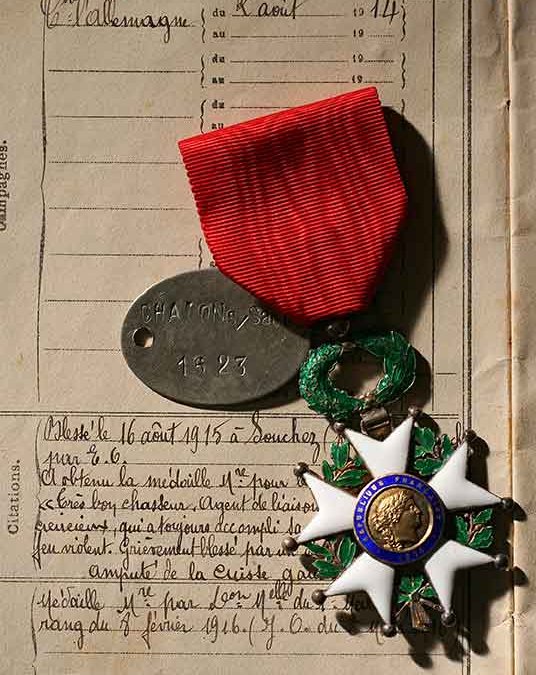 Cre l'Allemagne
du 2 août 19 14
au 19
du 19
au 19
du
au
Campagnes.
CHALONs/Sa
1623
Citations.
Blessé le 16 août 1915 à Souchez
par E. O.
A obtenu la médaille Mre pour
« Très bon chasseur, Agent de liaison
cieux, qui a toujours accompli sa
feu violent. Grièvement blessé par
amputé de la cuisse gau
Médaille Mre par du
rang du 8 février 1916. (J. O. du
REPUBLIQUE FRANÇAISE